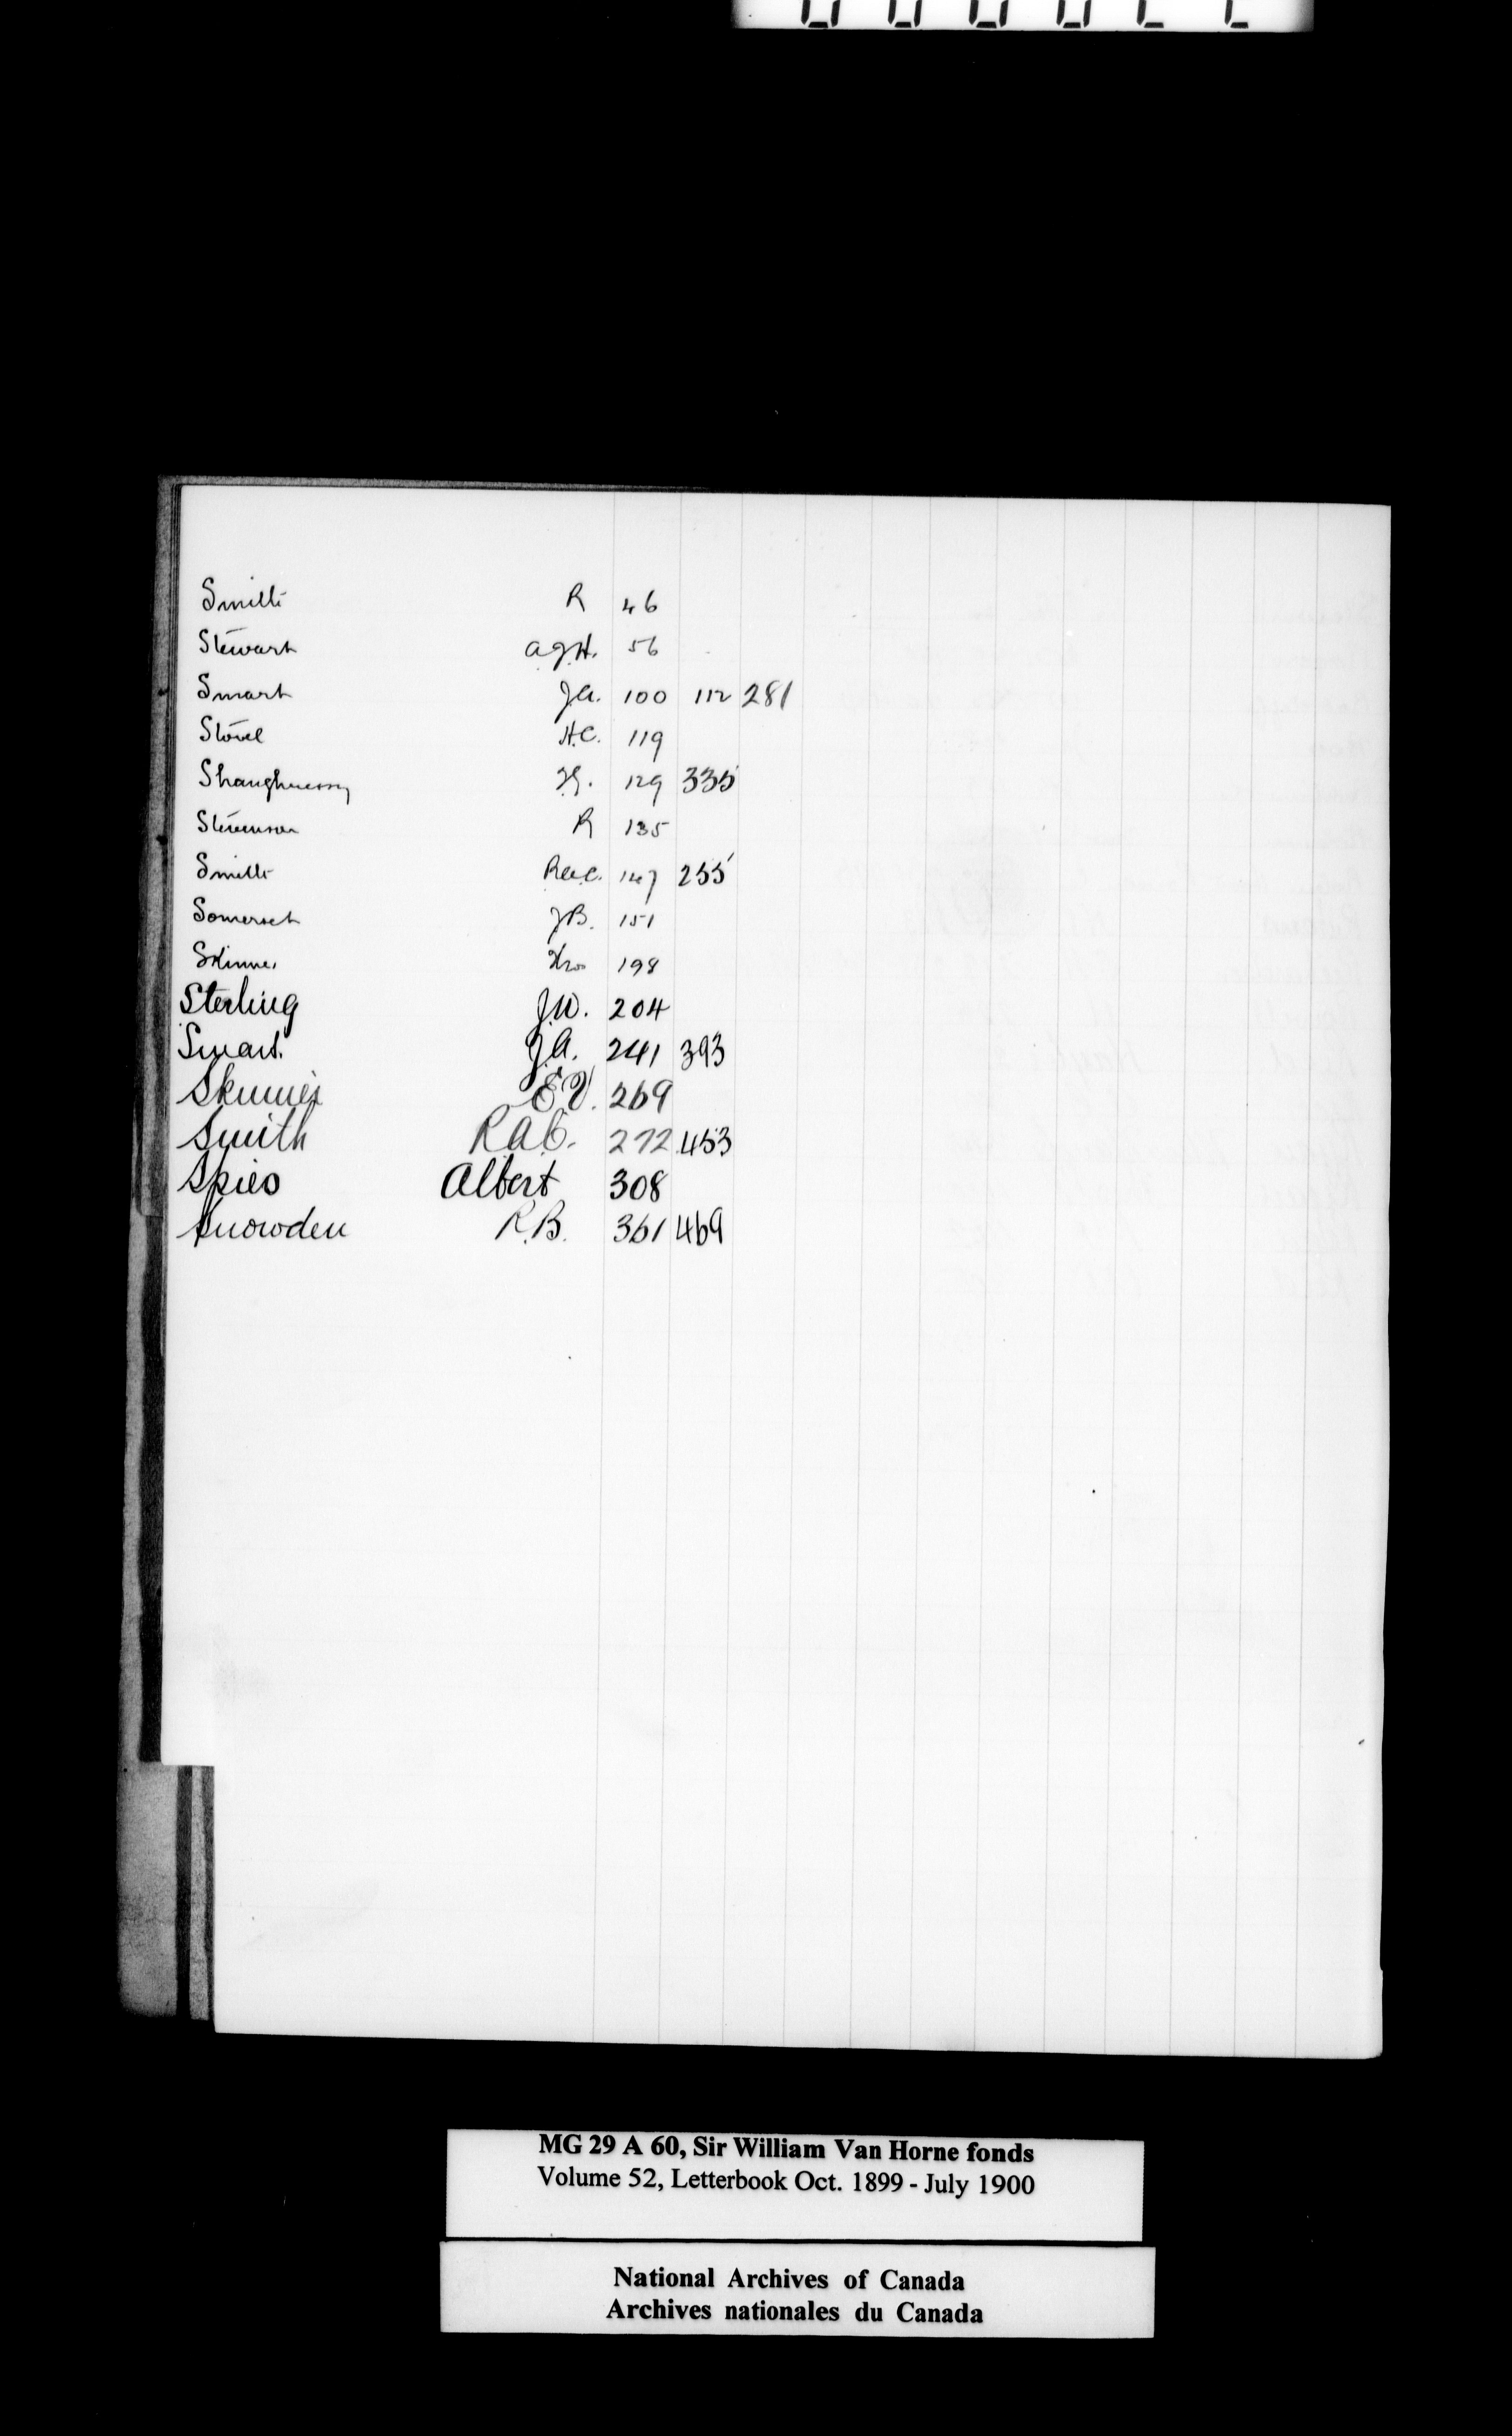 Smith R 46
Stewart A.J.H. 56
Smart J.A. 100 112 281
Stovel H.C. 119
Shaughnessy T.G. 129 335
Stevenson R 135
Smith R.A.C. 147 255
Somerset J.B. 151
Skinner Thos 198
Sterling J.W. 204
Smart J.A. 241 393
Skinner E.V. 269
Smith R.A.C. 272 453
Spies Albert 308
Snowden R.B. 361 469
MG 29 A 60, Sir William Van Horne fonds
Volume 52, Letterbook Oct. 1899 - July 1900
National Archives of Canada
Archives nationales du Canada